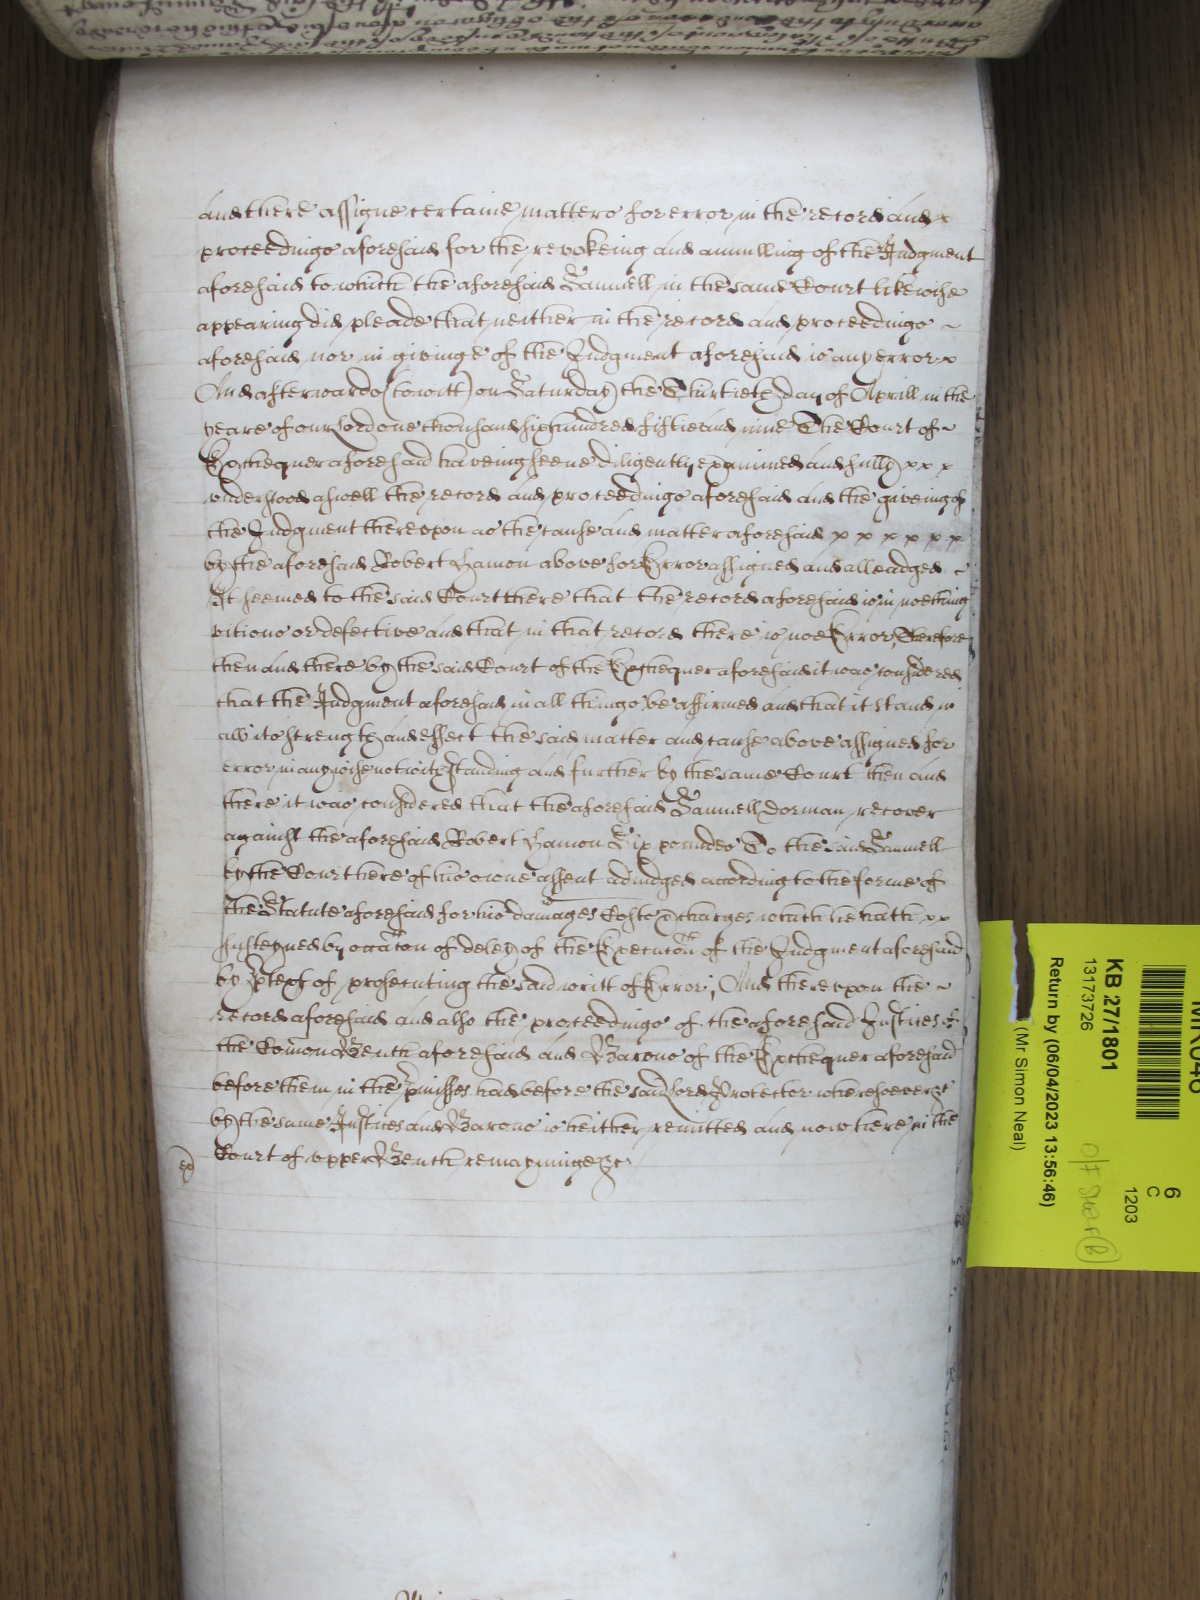 and there assigne certaine matters for error in the record and x
proceedings aforesaid for the revokeing and anulling of the Judgment
aforesaid to which the aforesaid Samuell in the same Court likewise
appearing did pleade that neither in the record and proceedings ~
aforesaid nor in givinge of the Judgment aforesaid is any error x
And afterwards (to witt) on Saturday the Thirtieth day of Aprill in the
yeare of our Lord one thousand six hundred fiftie and nine The Court of ~
Exchequer aforesaid haveing seene diligently examined and fully x x x
understood aswell the record and proceedings aforesaid and the giveing of
the Judgment thereupon as the cause and matter aforesaid x x x x x x
by the aforesaid Robert Hamon above for Error assigned and alleadged ~
It seemed to the said Court there that the record aforesaid is in noething
vitious or defective and that in that record there is noe Error, Therefore
then and there by the said Court of the Exchequer aforesaid it was considered
that the Judgment aforesaid in all things be affirmed and that it stand in
all its strength and effect the said matter and cause above assigned for
error in any wise notwithstanding and further by the same Court then and
there it was considered that the aforesaid Samuell Dorman recover
against the aforesaid Robert Hamon Six poundes To the said Samuell
by the Court here of his owne assent adiudged according to the forme of
the Statute aforesaid for his damages Costs & charges which he hath x x
susteyned by occacon of delay of the Execucon of the Judgment aforesaid
by ptext of prosecuting the said writt of Error; And thereupon the ~
record aforesaid and also the proceedings of the aforesaid Justices of
the Comon Bench aforesaid and Barons of the Exchequer aforesaid
before them in the pmisses had before the said Lord Protector wheresoever &c
by the same Justices and Barons is heither remitted and now here in the
Court of upper Bench remayninge &c
KB 27/1801
13173726
Return by (06/04/2023 13:56:46)
(Mr Simon Neal)
6
C
1203